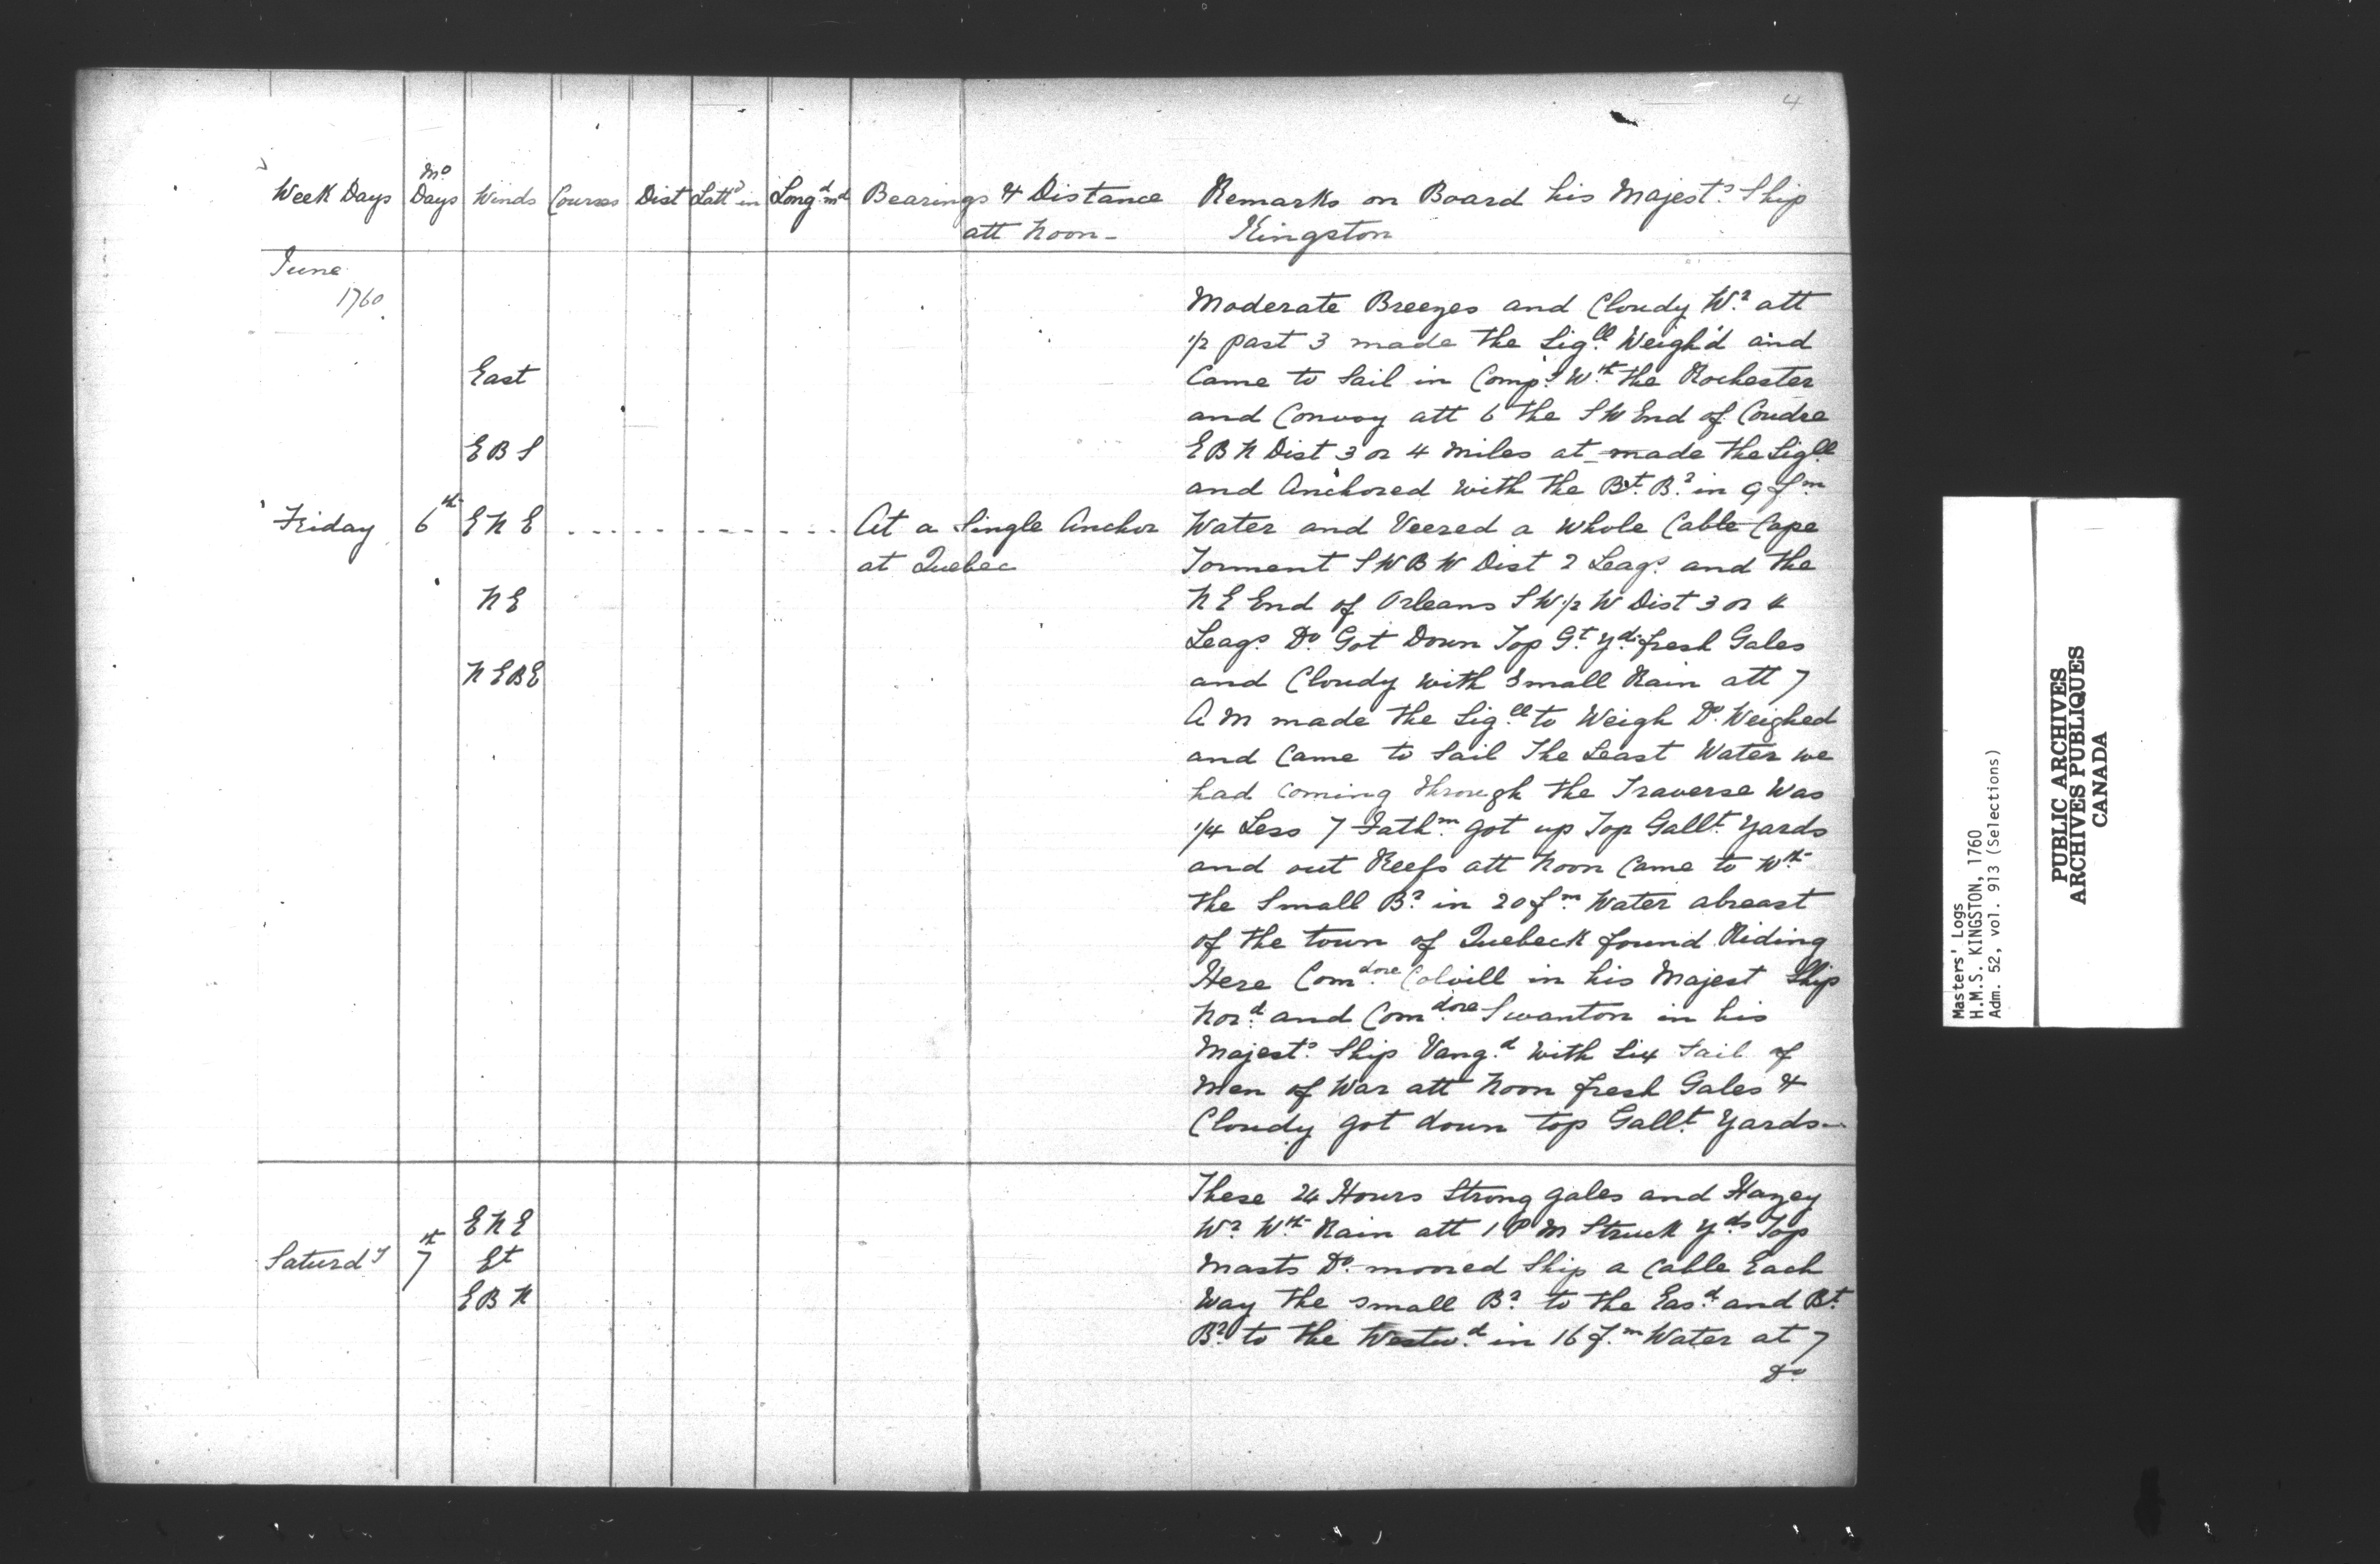 4
Week Days Mo Days Winds Courses Dist Lattd in Longd ind Bearings & Distance att Noon- Remarks on Board his Majests Ship Kingston
June
1760
Moderate Breezes and Cloudy Wr att
1/2 past 3 made the Sigll Weigh'd and
East Came to Sail in Compy Wth the Rochester
and Convoy att 6 the SW End of Coudre
EBS EBN Dist 3 or 4 Miles at made the Sigll
and Anchored with the Bt Br in 9 fm
Friday 6th ENE At a Single Anchor Water and Veered a whole Cable Cape
at Quebec Torment SWBW Dist 2 Leags and the
NE NE End of Orleans SW1/2W Dist 3 or 4
Leags Do Got Down Top Gt yds fresh Gales
NEBE and Cloudy with Small Rain att 7
AM made the Sigll to Weigh Do Weighed
and Came to Sail The Least Water we
had coming through the Traverse Was
1/4 Less 7 Fathm got up Top Gallt Yards
and out Reefs att Noon Came to Wth
the Small Br in 20 fm Water abreast
of the town of Quebeck found Riding
Here Comdore Colvill in his Majest Ship
Nord and Comdore Swanton in his
Majests Ship Vangd with Six Sail of
Men of War att Noon fresh Gales &
Cloudy got down top Gallt Yards
These 24 Hours Strong gales and Hazey
ENE Wr Wth Rain att 1 PM Struck yds Top
Saturdy 7th Et Masts Do moored Ship a Cable Each
EBN Way the small Br to the Easd and Bt
Br to the Westwd in 16 fm Water at 7
Do
Masters' Logs
H.M.S. KINGSTON, 1760
Adm. 52, vol. 913 (Selections)
PUBLIC ARCHIVES
ARCHIVES PUBLIQUES
CANADA